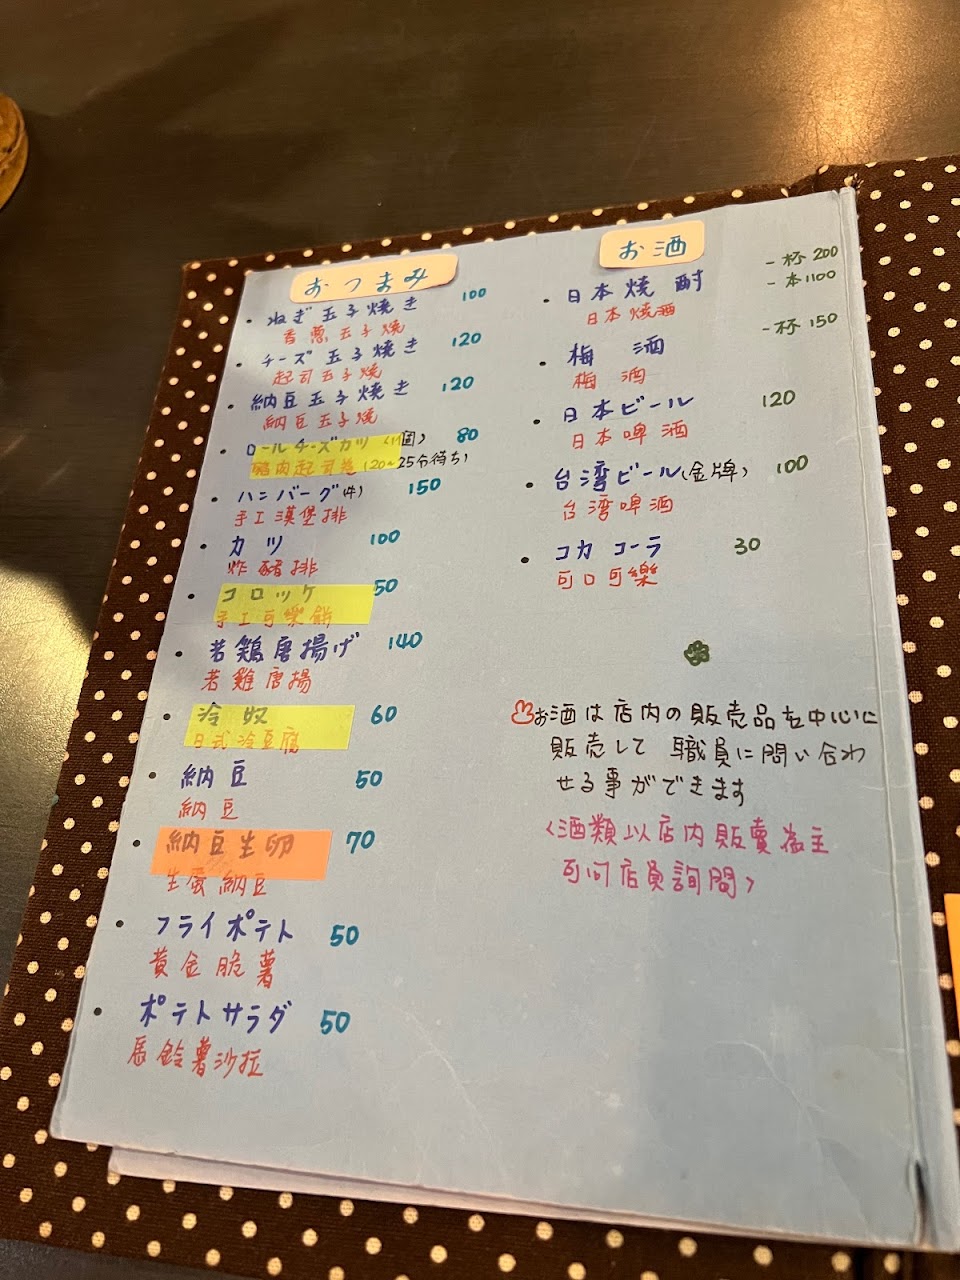 おつまみ
・ねぎ玉子焼き 100
香蔥玉子燒
・チーズ玉子焼き 120
起司玉子燒
・納豆玉子焼き 120
納豆玉子燒
・ロールチーズカツ(1個) 80
起司捲(20~25分待ち)
・ハンバーグ(件) 150
手工漢堡排
・カツ 100
炸豬排
・コロッケ 50
手工可樂餅
・若鶏唐揚げ 140
若雞唐揚
・冷奴 60
日式冷豆腐
・納豆 50
納豆
・納豆生卵 70
生蛋納豆
・フライポテト 50
黃金脆薯
・ポテトサラダ 50
馬鈴薯沙拉
お酒
・日本焼酎 一杯200
一本1100
日本燒酒
・梅酒 一杯150
梅酒
・日本ビール 120
日本啤酒
・台湾ビール(金牌) 100
台湾啤酒
・コカコーラ 30
可口可樂
お酒は店内の販売品を中心に
販売して 職員に問い合わ
せる事ができます
<酒類以店內販賣為主
可向店員詢問>